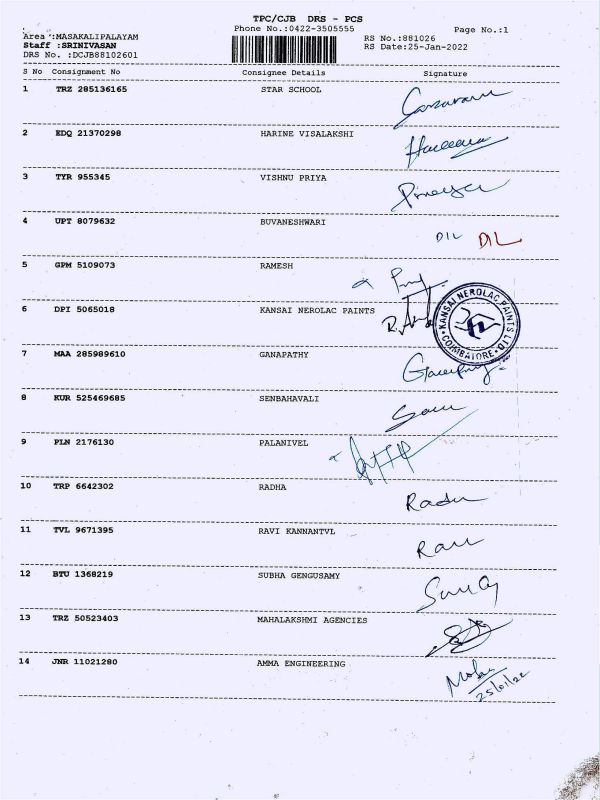 TPC/CJB DRS - PCS
Phone No.:0422-3505555
Page No.:1
Area :MASAKALIPALAYAM
Staff :SRINIVASAN
DRS No. :DCJB88102601
RS No.:881026
RS Date:25-Jan-2022
S No Consignment No Consignee Details Signature
1 TRZ 285136165 STAR SCHOOL
2 EDQ 21370298 HARINE VISALAKSHI
3 TYR 955345 VISHNU PRIYA
4 UPT 8079632 BUVANESHWARI DIL DIL
5 GPM 5109073 RAMESH
6 DPI 5065018 KANSAI NEROLAC PAINTS
KANSAI NEROLAC PAINTS LTD COIMBATORE
7 MAA 285989610 GANAPATHY
8 KUR 525469685 SENBAHAVALI
9 PLN 2176130 PALANIVEL
10 TRP 6642302 RADHA Radu
11 TVL 9671395 RAVI KANNANTVL
12 BTU 1368219 SUBHA GENGUSAMY
13 TRZ 50523403 MAHALAKSHMI AGENCIES
14 JNR 11021280 AMMA ENGINEERING
25/01/22